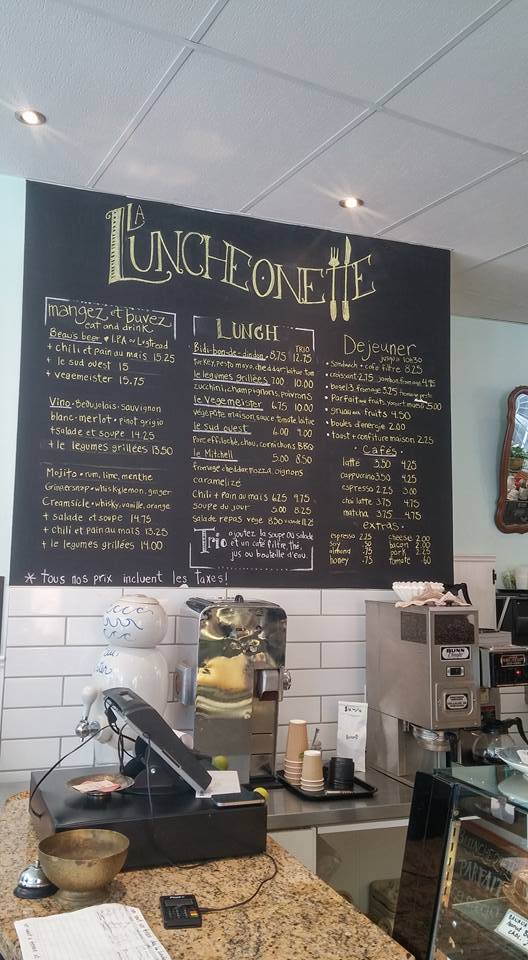 LA
LUNCHEONETTE
mangez et buvez
eat and drink
Beau's beer • I.PA ~ Lugtread
+ chili et pain au maïs 15.25
+ le sud ouest 15
+ vegemeister 15.75
Vino - Beaujolais - sauvignon
blanc - merlot • pinot grigio
+ salade et soupe 14.25
+ le legumes grillées 13.50
Mojito • rum, lime, menthe
Gingersnap • whisky, lemon, ginger
Creamsicle • whisky, vanille, orange
+ salade et soupe 14.75
+ chili et pain au maïs 13.25
+ le legumes grillées 14.00
* tous nos prix incluent les taxes!
LUNCH
TRIO
Bidi-bon-de-dindon • 8.75 12.75
turkey, pesto mayo, cheddar, laitue tom
le legumes grillées 7.00 10.00
zucchini, champignons, poivrons
le Vegemeister 6.75 10.00
végé pâté maison, sauce, tomate laitue
le sud ouest 6.00 9.00
Porc effiloché, chou, cornichons BBQ
le Mitchell 5.00 8.50
fromage cheddar + mozza, oignons
caramelizé
Chili + Pain au maïs 6.25 9.75
soupe du jour 5.00 8.25
salade repas vege 8.50 viande 11.25
Trio ajoutez la soupe ou salade
et un café filtre, thé,
jus ou bouteille d'eau
Dejeuner
jusqu'a 10h30
• sandwich + cafe filtre 8.25
• croissant 2.75 jambon, fromage 4.75
• bagel 3 fromage 3.25
• Parfait aux fruits, yogourt maison 5.00
• gruau aux fruits 4.50
• boules d'energie 2.00
• toast + confiture maison 2.25
• Cafés •
latté 3.50 4.25
cappuccino 3.50 4.25
espresso 2.25 3.00
chai latte 3.75 4.75
matcha 3.75 4.75
extras •
espresso .75 cheese 2.00
soy .50 bacon 2.00
almond .75 pork 2.25
honey .75 tomate .60
BUNN
BUNN
PARFAIT